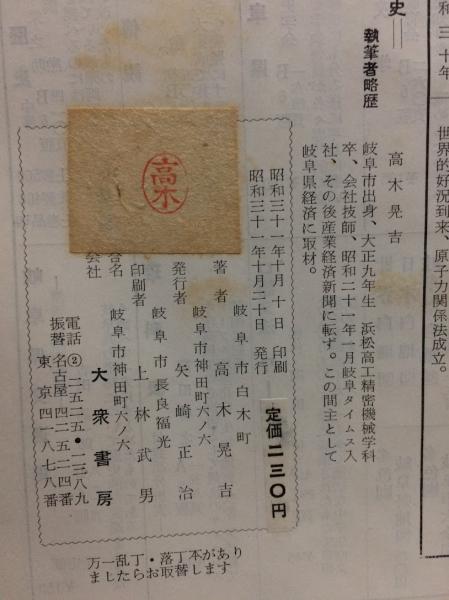 和三十年
世界的好況到来、原子力関係法成立。
史＝
執筆者略歴
高木晃吉
岐阜市出身、大正九年生 浜松高工精密機械学科
卒、会社技師、昭和二十一年一月岐阜タイムス入
社、その後産業経済新聞に転ず。この間主として
岐阜県経済に取材。
昭和三十一年十月十日 印刷
昭和三十一年十月二十日 発行
定価二三〇円
岐阜市白木町
著者 高木晃吉
岐阜市神田町六ノ六
発行者 矢崎正治
岐阜市長良福光
印刷者 上林武男
岐阜市神田町六ノ六
合名
会社 大衆書房
電話②二五二五・一三八九
振替 名古屋四二五二四番
東京四一八七八番
高木
万一乱丁・落丁本があり
ましたらお取替します